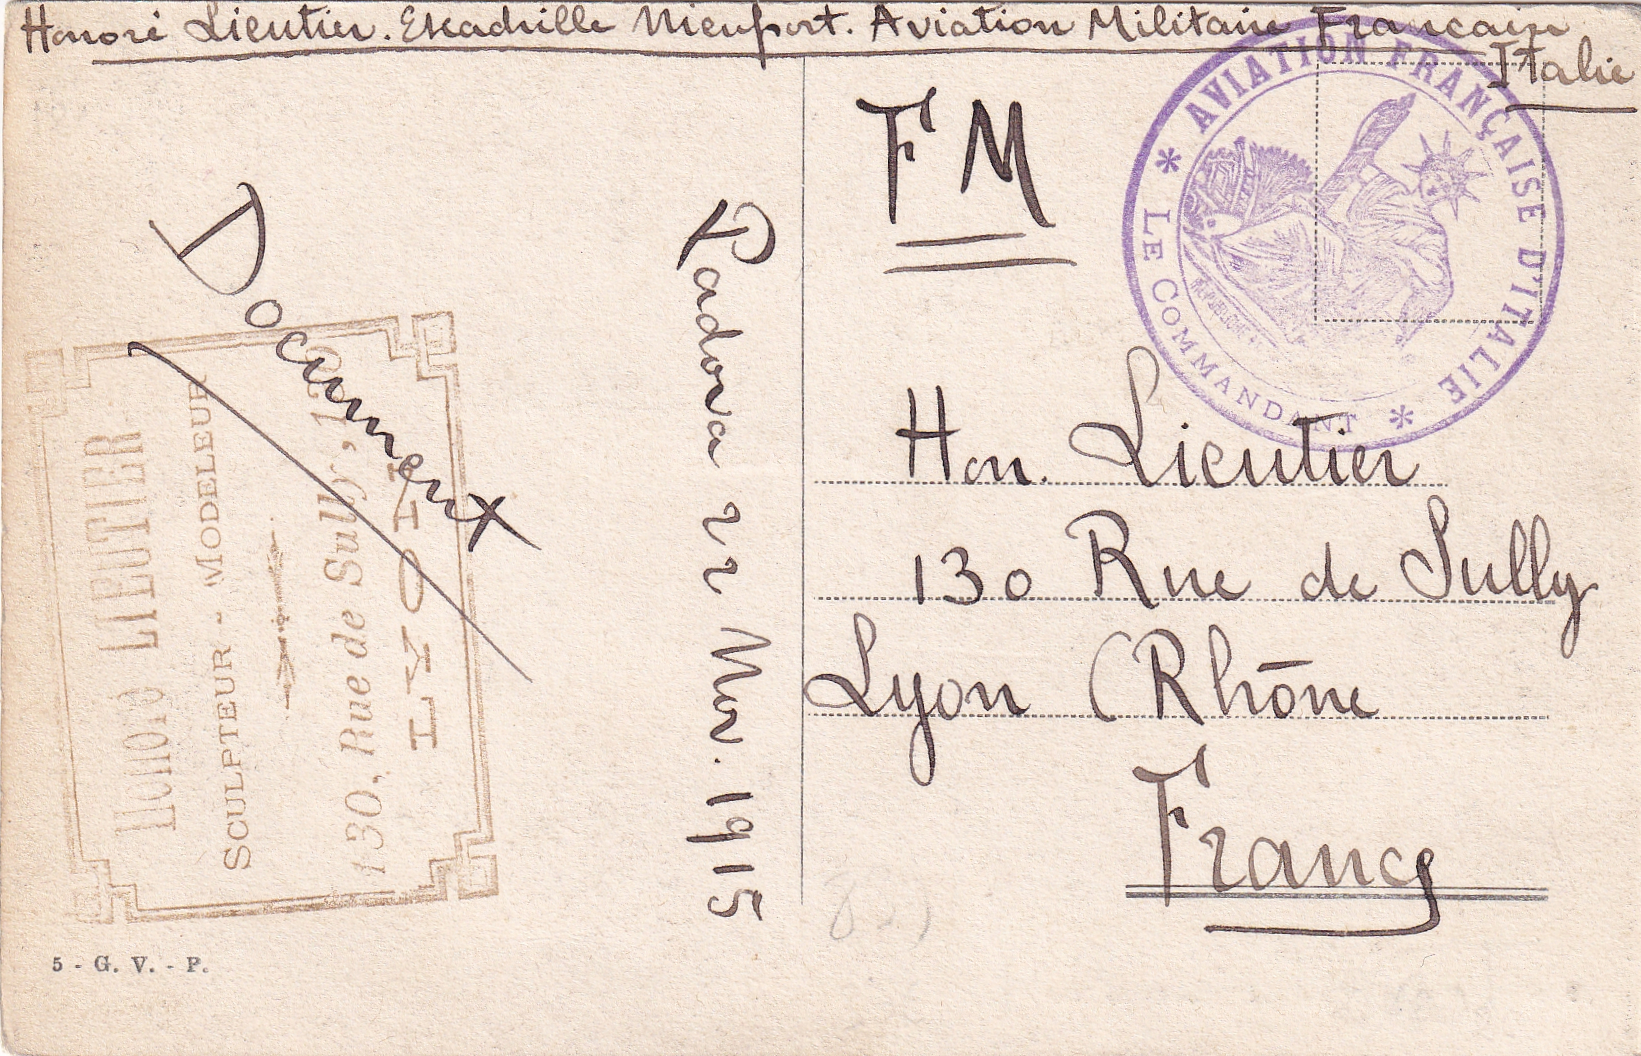 Honoré Lieutier. Eskadrille Nieuport. Aviation Militaire Française
Italie
FM
* AVIATION FRANÇAISE D'ITALIE *
LE COMMANDANT
Document
Honoré LIEUTIER
SCULPTEUR - MODELEUR
130, Rue de Sully, 130
LYON
Padova 22 Nov. 1915
Hon. Lieutier
130 Rue de Sully
Lyon (Rhône
France
5 - G. V. - P.